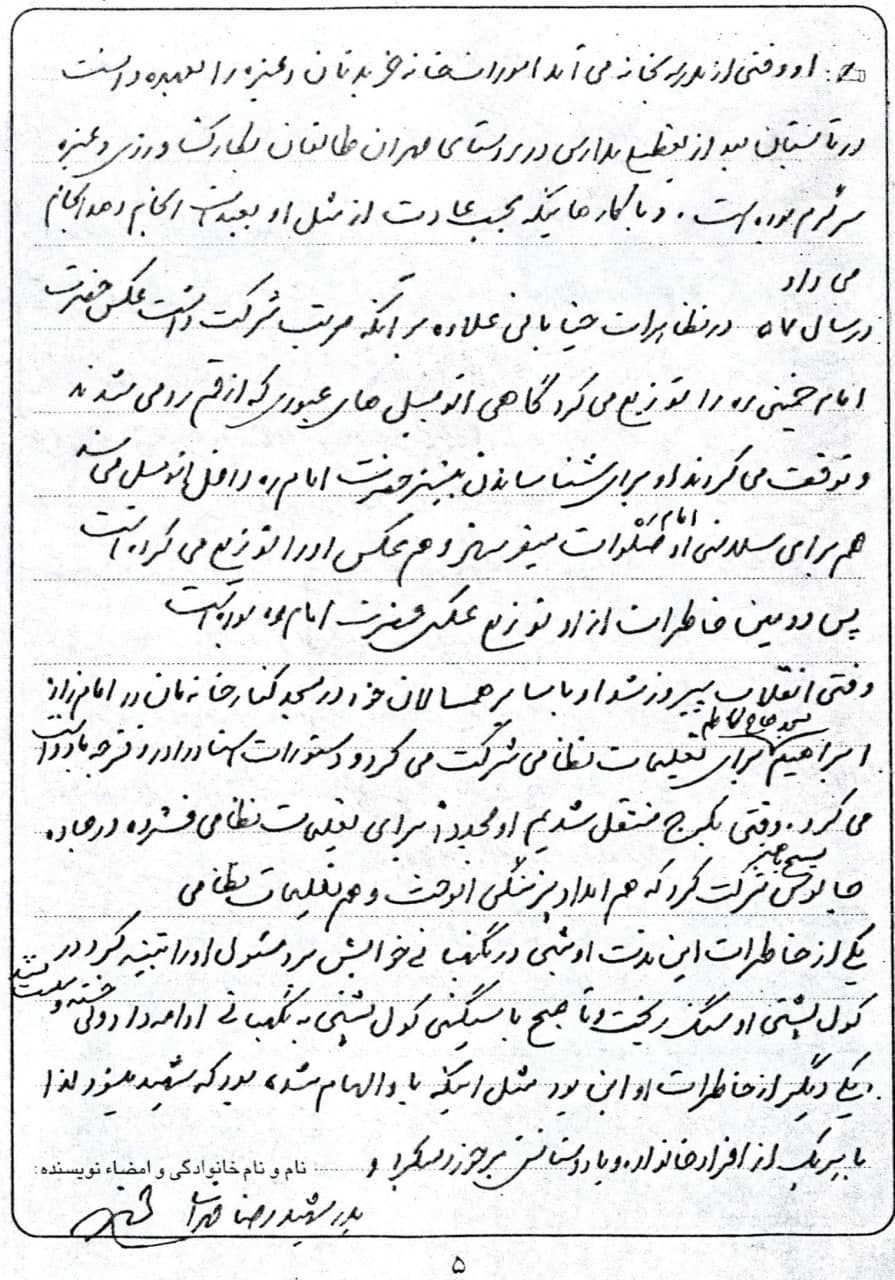 ج: او وقتی از مدرسه بخانه می آمد امورات خانه خرید نان و غیره را بعهده داشت
در تابستان بعد از تعطیل مدارس در روستای مهران طالقان بکار کشاورزی و غیره
سرگرم بوده است. و با کارهائیکه بحسب عادت از مثل او بعید است انجام
می داد
در سال ۵۷ در تظاهرات خیابانی علاوه بر آنکه مرتب شرکت داشت عکس حضرت
امام خمینی ره را توزیع می کرد گاهی اتومبیل های عبوری که از قم رد می شدند
و توقف می کردند او برای شناساندن بیشتر حضرت امام ره داخل اتومبیل می شد
هم برای سلامتی امام ره صلوات میفرستاد و هم عکس او را توزیع می کرده است
پس دومین خاطرات از او توزیع عکس حضرت امام ره بوده است
وقتی انقلاب پیروز شد او با سایر همسالان خود در مسجد کنار خانه مان در امام زاده
ابراهیم مسجد حاج کاظم برای تعلیمات نظامی شرکت می کرد و دستورات استاد را در دفترچه یادداشت
می کرد. وقتی بکرج منتقل شدیم او مجددا برای تعلیمات نظامی فشرده در جاده
چالوس بسیج شرکت کرد که هم امداد پزشکی آموخت و هم تعلیمات نظامی
یکی از خاطرات این مدت او شبی در نگهبانی خوابش برد مسئول او را تنبیه کرد در
کول پشتی او سنگ ریخت و تا صبح با سنگینی کول پشتی به نگهبانی ادامه داد ولی خسته و سست نشد
یکی دیگر از خاطرات او این بود مثل اینکه با و الهام شده بود که شهید میشود لذا
با یک یک از افراد خانواده و با دوستانش برخورد میکرد و
نام و نام خانوادگی و امضاء نویسنده:
پدر شهید رضا
۵